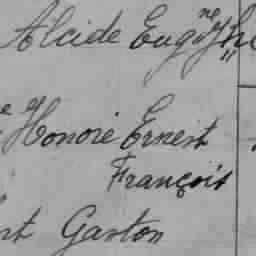 Alcide Eug
Honoré Ernest
François
nt Gaston